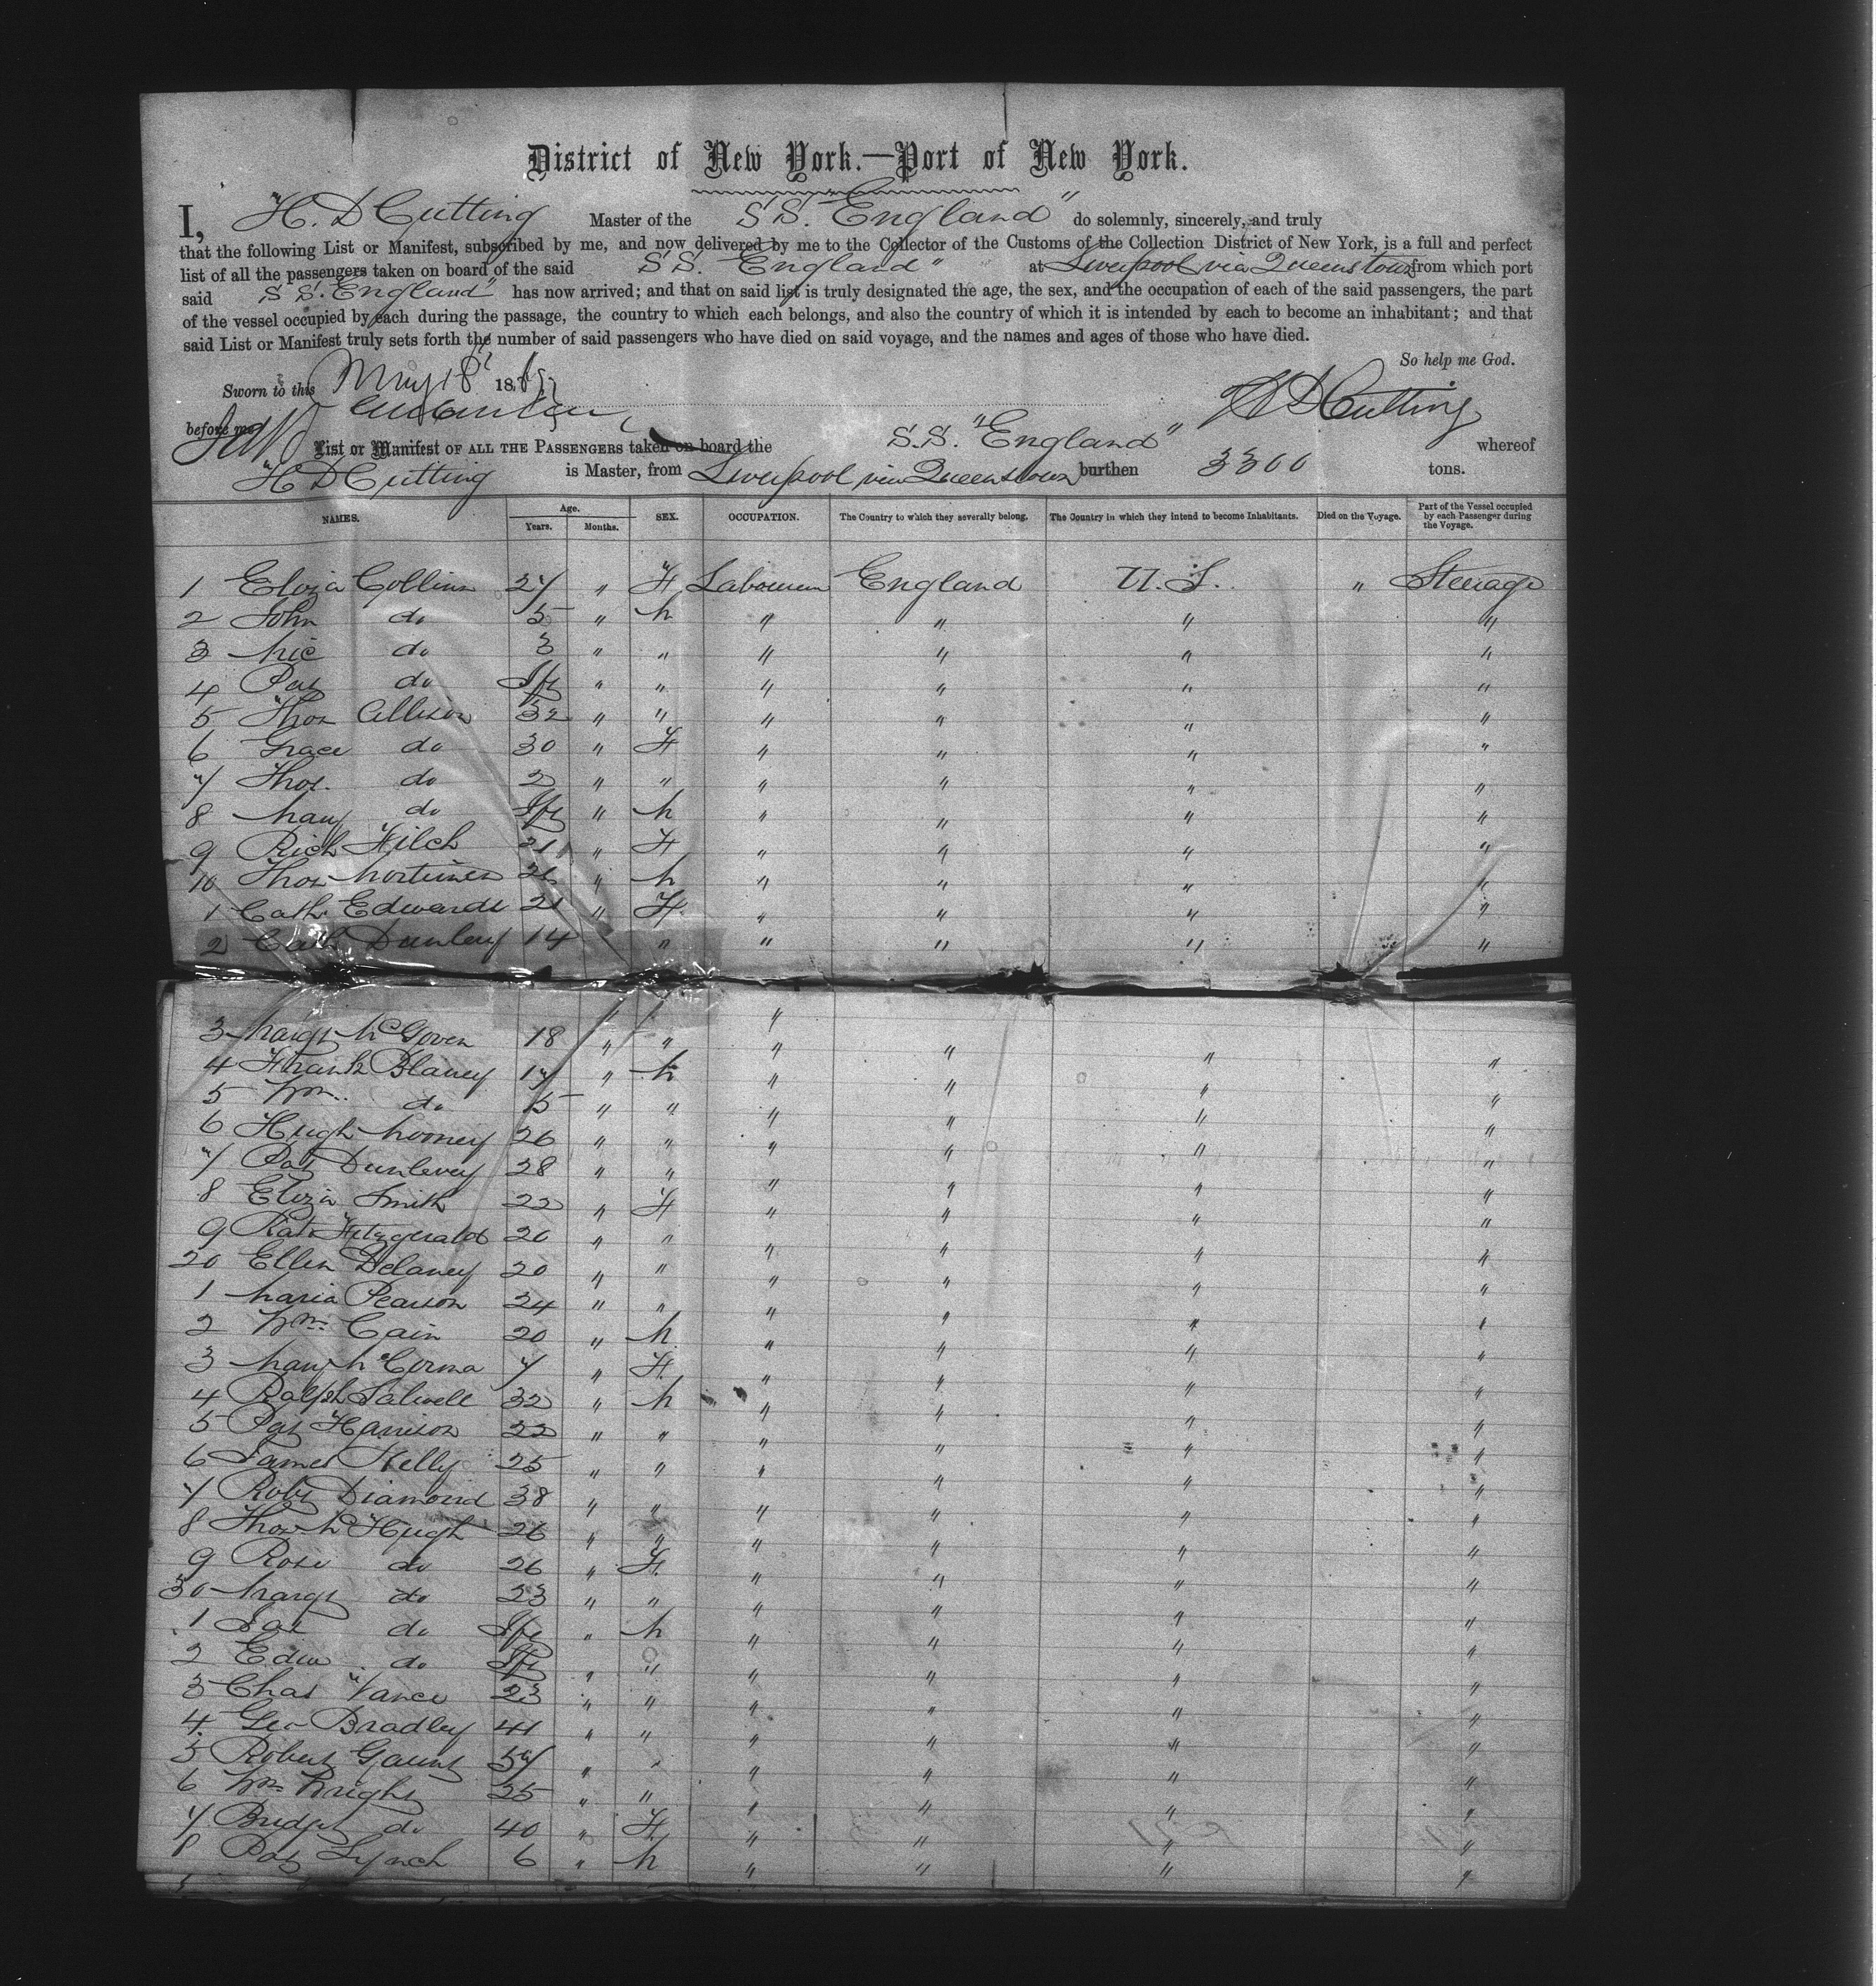 District of New York.—Port of New York.
I, H. D Cutting Master of the S.S. "England" do solemnly, sincerely, and truly
that the following List or Manifest, subscribed by me, and now delivered by me to the Collector of the Customs of the Collection District of New York, is a full and perfect
list of all the passengers taken on board of the said S.S. "England" at Liverpool via Queenstown from which port
said S.S. "England" has now arrived; and that on said list is truly designated the age, the sex, and the occupation of each of the said passengers, the part
of the vessel occupied by each during the passage, the country to which each belongs, and also the country of which it is intended by each to become an inhabitant; and that
said List or Manifest truly sets forth the number of said passengers who have died on said voyage, and the names and ages of those who have died.
So help me God.
Sworn to this May 18 18
before me H D Cutting
List or Manifest OF ALL THE PASSENGERS taken on board the S.S. "England" whereof
H D Cutting is Master, from Liverpool via Queenstown burthen 3300 tons.
NAMES. Age. Years. Months. SEX. OCCUPATION. The Country to which they severally belong. The Country in which they intend to become Inhabitants. Died on the Voyage. Part of the Vessel occupied by each Passenger during the Voyage.
1 Eliza Collins 27 " F Labourer England U.S. " Steerage
2 John do 5 " M " " " "
3 Mic do 3 " " " " " "
4 Pat do Inft " " " " " "
5 Thos Allison 32 " " " " " "
6 Grace do 30 " F " " " "
7 Thos. do 2 " " " " " "
8 Mary do Inft " M " " " "
9 Rich Filch 21 " F " " " "
10 Thos Mortimer 26 " M " " " "
1 Cath Edwards 21 " F " " " "
2 Cath Dunlevy 14 " " " " "
3 Margt McGoven 18 " " " " " "
4 Frank Blaney 17 " M " " " "
5 Wm. do 15 " " " " " "
6 Hugh Mooney 26 " " " " " "
7 Pat Dunlevey 28 " " " " " "
8 Eliza Smith 22 " F " " " "
9 Kate Fitzgerald 20 " " " " " "
20 Ellen Delaney 20 " " " " " "
1 Maria Pearson 24 " " " " " "
2 Wm. Cain 20 " M " " " "
3 Mary McCorma 7 " F " " " "
4 Ralph Salwell 32 " M " " " "
5 Pat Harrison 22 " " " " " "
6 James Kelly 25 " " " " " "
7 Robt Diamond 38 " " " " " "
8 Thos McHugh 26 " " " " " "
9 Rose do 26 " F " " " "
30 Margt do 23 " " " " " "
1 Jas do Inft " M " " " "
2 Edw do Inft " " " " " "
3 Chas Vance 23 " " " " " "
4 Geo Bradley 41 " " " " " "
5 Robert Gaunt 57 " " " " " "
6 Wm Wright 25 " " " " " "
7 Bridget do 40 " F " " " "
8 Pat Lynch 6 " M " " " "